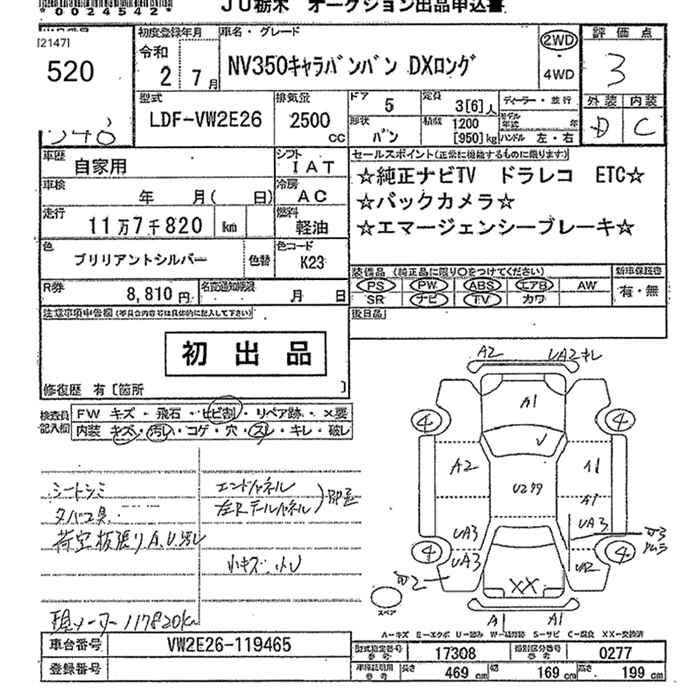 *0024542*
JU栃木 オークション出品申込書
[2147]
520
初度登録年月
令和 2年 7月
車名・グレード
NV350キャラバンバン DXロング
2WD
・
4WD
評価点
3
外装 内装
D C
型式
LDF-VW2E26
排気量
2500 cc
ドア
5
定員
3[6]人
形状
バン
積載
1200
[950]kg
ディーラー・並行
モデル年式 年
ハンドル 左・右
車歴
自家用
シフト
IAT
車検
年 月( 日)
冷房
AC
走行
11万7千820 km
燃料
軽油
色
ブリリアントシルバー
色替
色コード
K23
R券
8,810円
名変通知期限
月 日
セールスポイント(正常に機能するものに限ります)
☆純正ナビTV ドラレコ ETC☆
☆バックカメラ☆
☆エマージェンシーブレーキ☆
装備品 (純正品に限り○をつけてください)
PS PW ABS エアB AW
SR ナビ TV カワ
新車保証書
有・無
後日品
注意事項申告欄(不具合内容等は具体的に記入して下さい)
初出品
修復歴 有 [箇所 ]
検査員記入欄
FW キズ・飛石・ヒビ割・リペア跡・×要
内装 キズ・汚れ・コゲ・穴・スレ・キレ・破レ
シートシミ
タバコ臭
荷室板張りA、U、汚レ
エンドパネル
左Rテールパネル
小キズ・小U
現メーター117820km
A2
UA2キレ
A1
4
4
U
A2
A1
A1
UA3
UA3
UA3
U2
4
4
XX
A1
スペア
A-キズ E-エクボ U-凹み W-補修跡 S-サビ C-腐食 XX-交換済
車台番号
VW2E26-119465
登録番号
型式指定番号 参考
17308
類別区分番号 参考
0277
車検証期用 参考
長さ 469 cm 幅 169 cm 高さ 199 cm